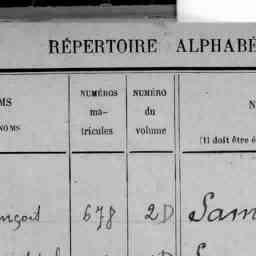 RÉPERTOIRE ALPHABÉ
MS
NOMS
NUMÉROS
ma-
tricules
NUMÉRO
du
volume
N
(Il doit être é
nçois 678 2D Sam